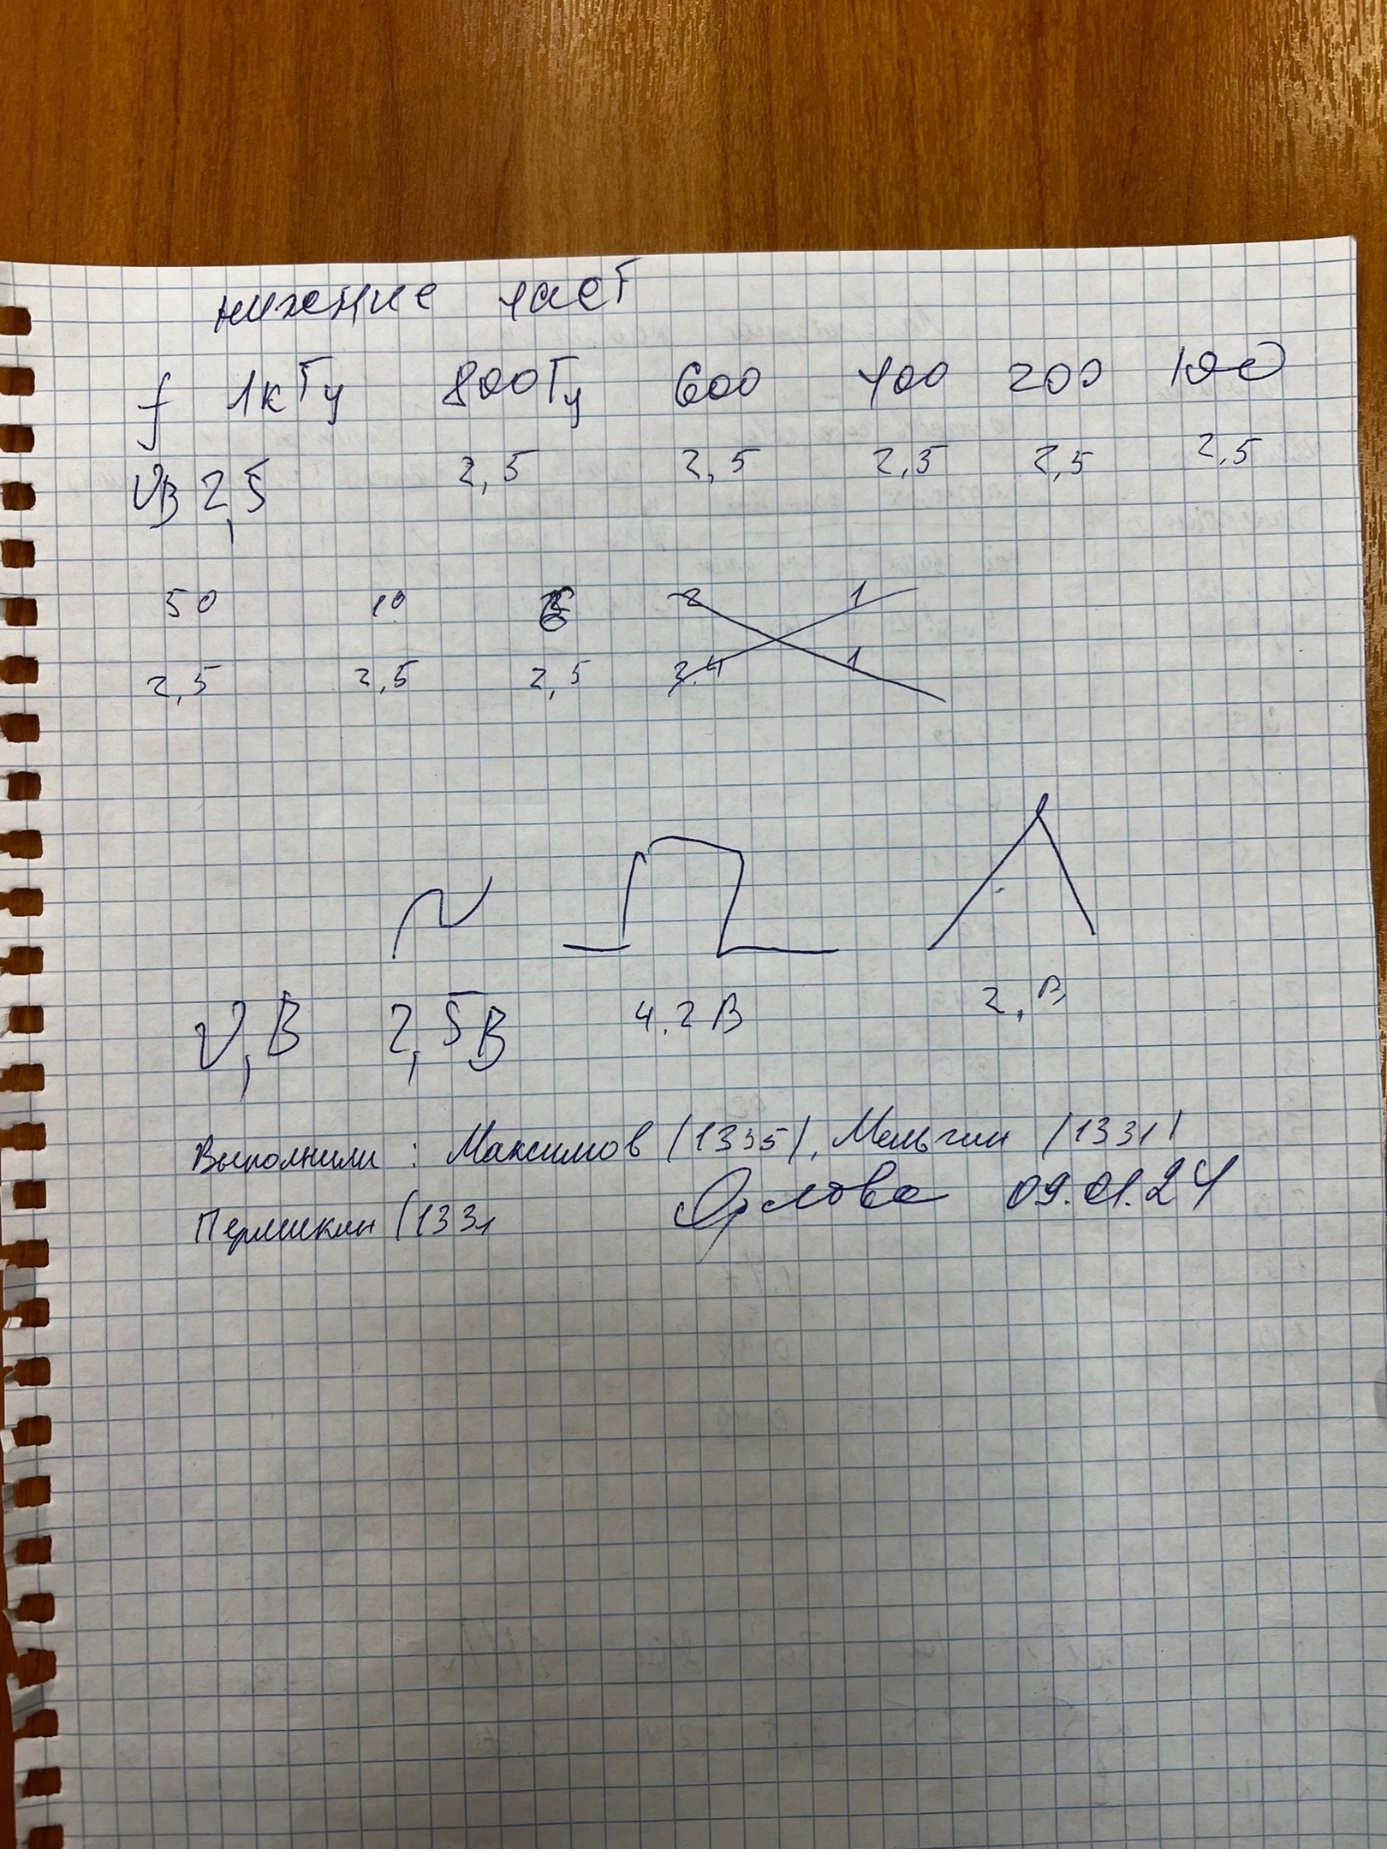 нижние част
f 1кГц 800Гц 600 400 200 100
UВ 2,5 2,5 2,5 2,5 2,5 2,5
50 10 2 1
2,5 2,5 2,5 2.4 1
U,В 2,5В 4.2В 2,В
Выполнили: Максимов (1335), Мельгин (1331)
Пермикин (1331
Орлова 09.01.24